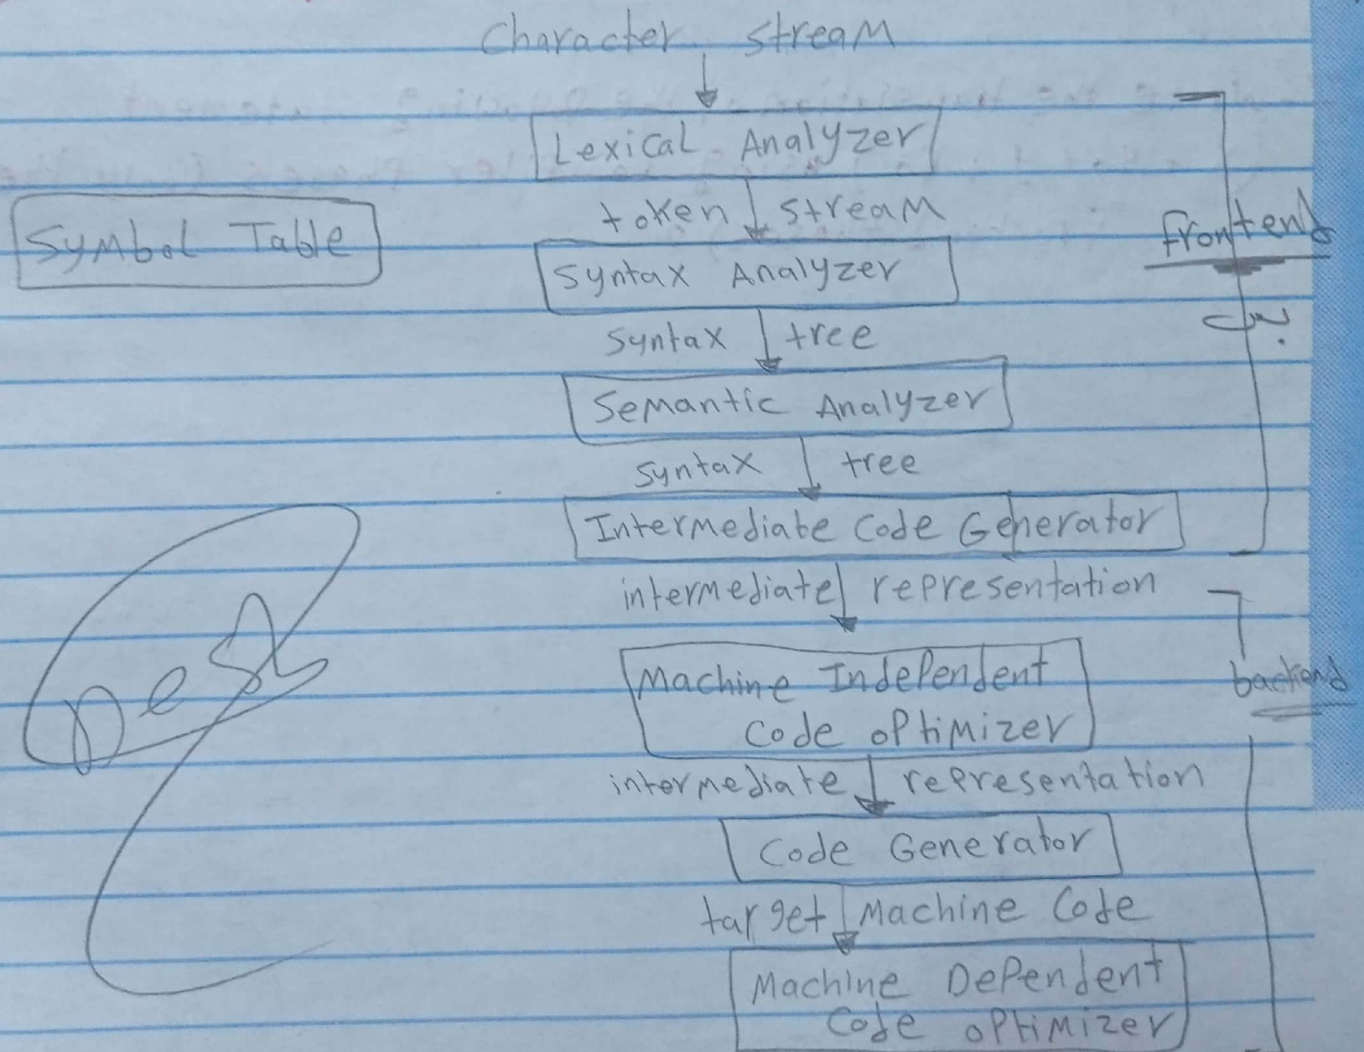 Character stream
Lexical Analyzer
token stream
Symbol Table
frontend
Syntax Analyzer
syntax tree
Semantic Analyzer
syntax tree
Intermediate Code Generator
intermediate representation
Machine Independent
Code optimizer
backend
intermediate representation
Code Generator
target Machine Code
Machine Dependent
Code optimizer